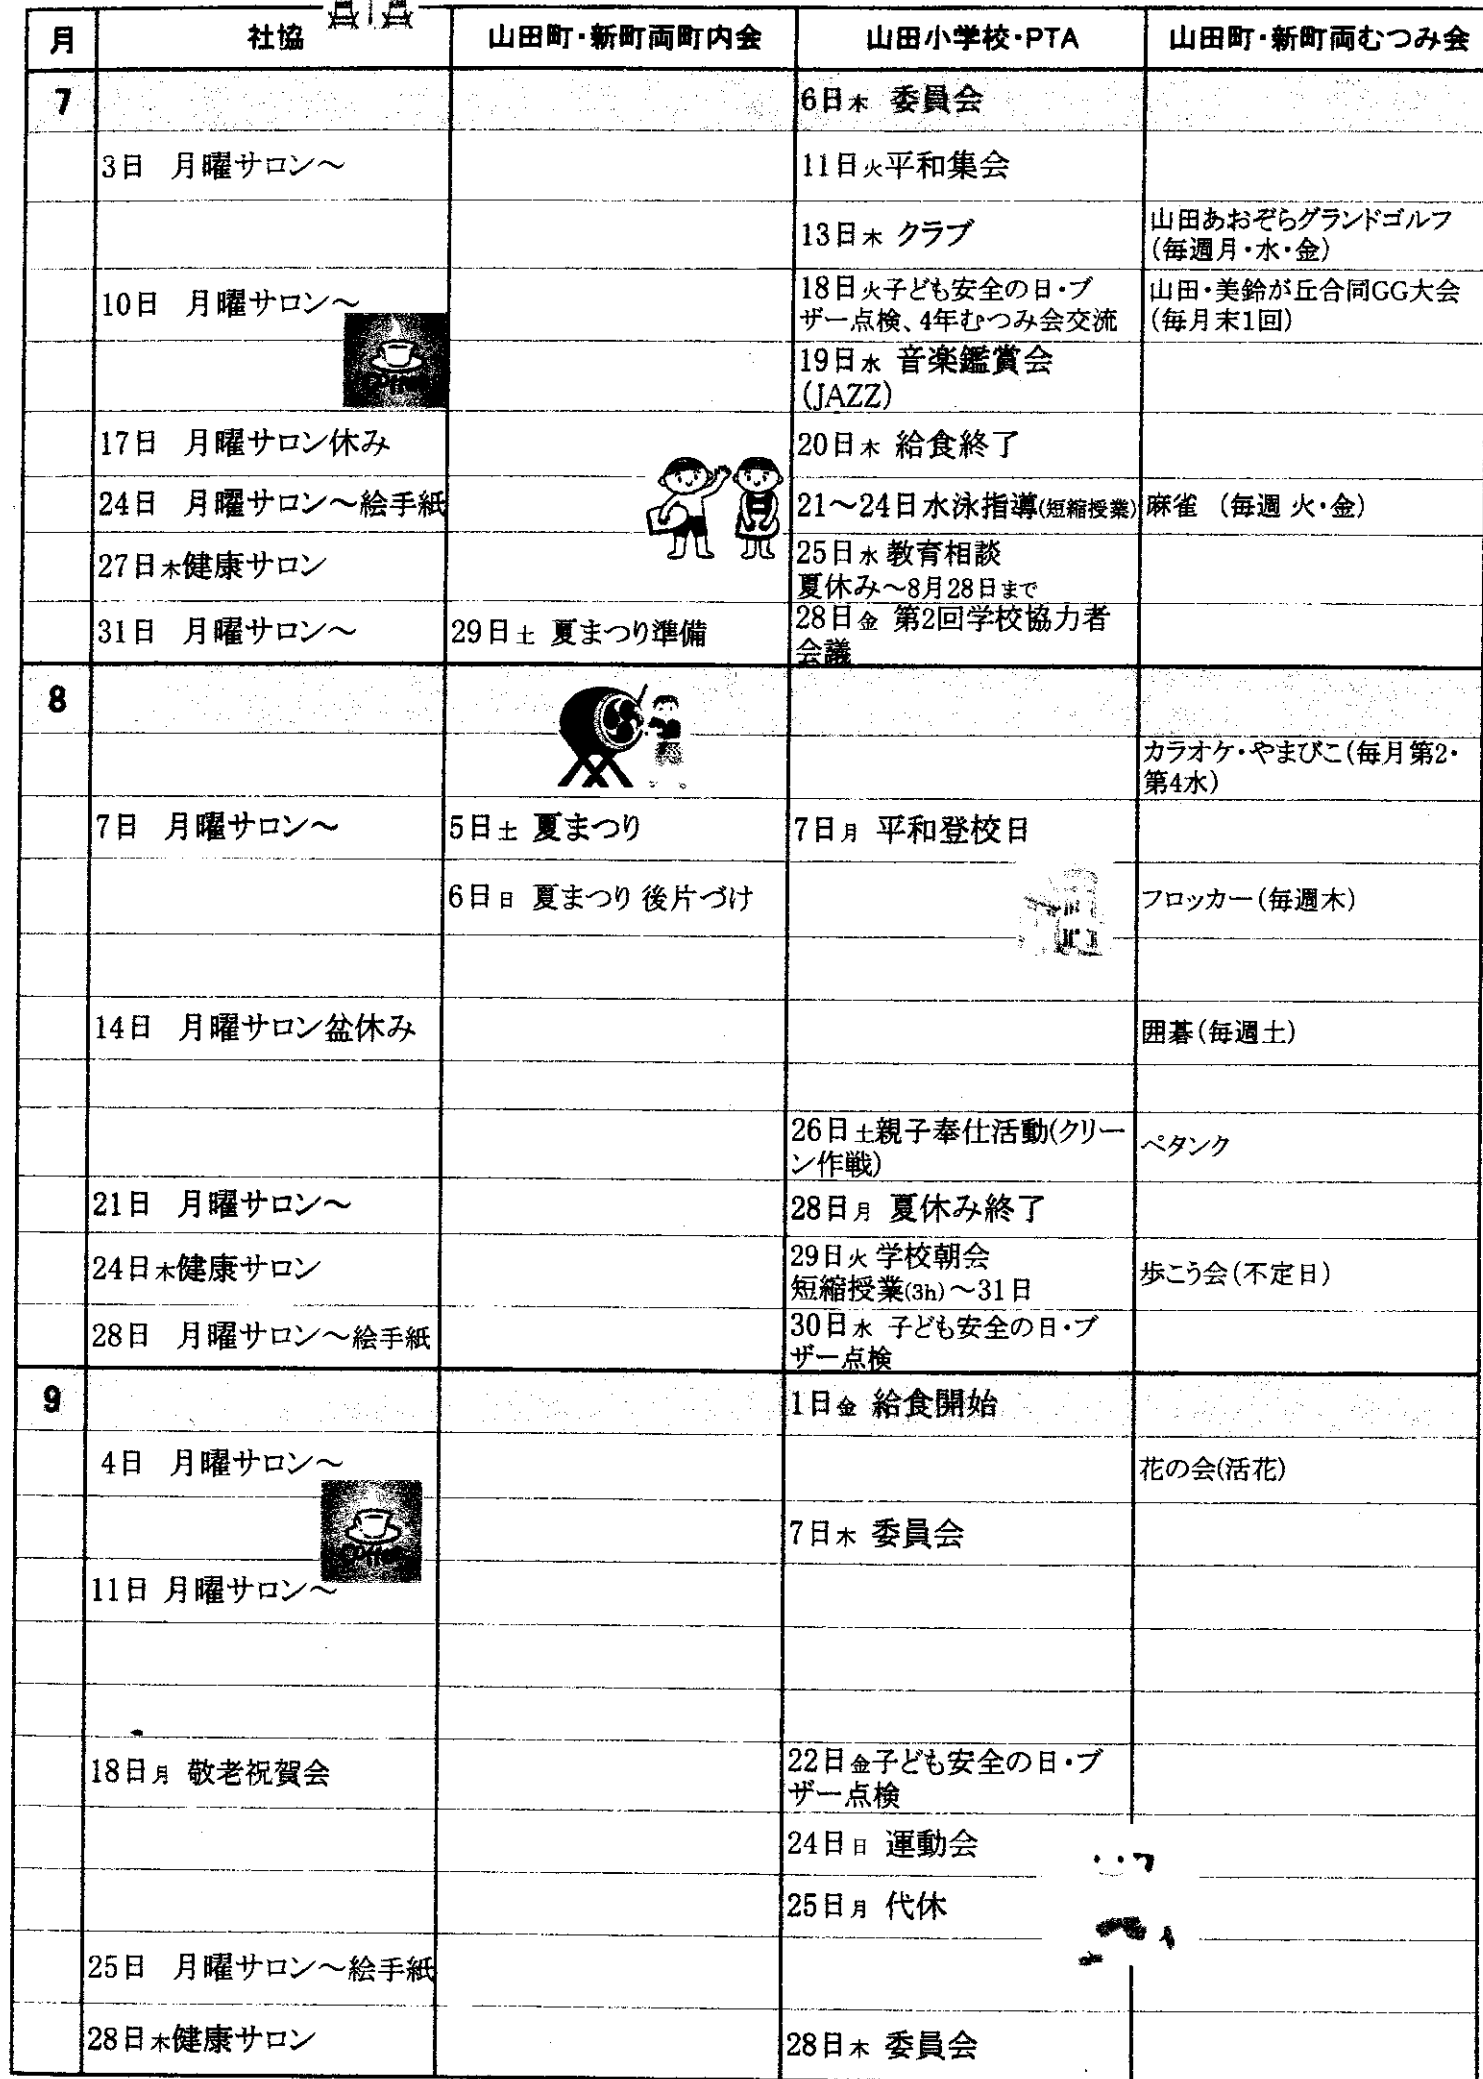 月 社協 山田町・新町両町内会 山田小学校・PTA 山田町・新町両むつみ会
7 6日木 委員会
3日 月曜サロン～ 11日火平和集会
13日木 クラブ 山田あおぞらグランドゴルフ
(毎週月・水・金)
10日 月曜サロン～ 18日火子ども安全の日・ブ 山田・美鈴が丘合同GG大会
ザー点検、4年むつみ会交流 (毎月末1回)
19日水 音楽鑑賞会
(JAZZ)
17日 月曜サロン休み 20日木 給食終了
24日 月曜サロン～絵手紙 21～24日水泳指導(短縮授業) 麻雀 (毎週 火・金)
27日木健康サロン 25日水 教育相談
夏休み～8月28日まで
31日 月曜サロン～ 29日土 夏まつり準備 28日金 第2回学校協力者
会議
8
カラオケ・やまびこ(毎月第2・
第4水)
7日 月曜サロン～ 5日土 夏まつり 7日月 平和登校日
6日日 夏まつり 後片づけ フロッカー(毎週木)
14日 月曜サロン盆休み 囲碁(毎週土)
26日土親子奉仕活動(クリー ペタンク
ン作戦)
21日 月曜サロン～ 28日月 夏休み終了
24日木健康サロン 29日火 学校朝会 歩こう会(不定日)
短縮授業(3h)～31日
28日 月曜サロン～絵手紙 30日水 子ども安全の日・ブ
ザー点検
9 1日金 給食開始
4日 月曜サロン～ 花の会(活花)
7日木 委員会
11日 月曜サロン～
18日月 敬老祝賀会 22日金子ども安全の日・ブ
ザー点検
24日日 運動会
25日月 代休
25日 月曜サロン～絵手紙
28日木健康サロン 28日木 委員会